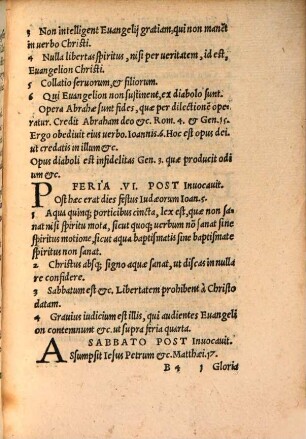 3 Non intelligent Euangelij gratiam, qui non manēt
in uerbo Christi.
4 Nulla libertas spiritus, nisi per ueritatem, id est,
Euangelion Christi.
5 Collatio seruorum, & filiorum.
6 Qui Euangelion non sustinent, ex diabolo sunt.
Opera Abrahæ sunt fides, quæ per dilectionē ope⸗
ratur. Credit Abraham deo &c. Rom. 4. & Gen. 15.
Ergo obediuit eius uerbo. Ioannis. 6. Hoc est opus dei
ut credatis in illum &c.
Opus diaboli est infidelitas Gen. 3. quæ producit odi
um &c.
FERIA .VI. POST Inuocauit.
Post hæc erat dies festus Iudæorum Ioan. 5.
1 Aqua quinq; porticibus cincta, lex est, quæ non sa⸗
nat nisi spiritu mota, sicut quoq; uerbum nō sanat sine
spiritus motione, sicut aqua baptismatis sine baptismate
spiritus non sanat.
2 Christus absq; signo aquæ sanat, ut discas in nulla
re confidere.
3 Sabbatum est &c. Libertatem prohibent à Christo
datam.
4 Grauius iudicium est illis, qui audientes Euangeli
on contemnunt &c. ut supra feria quarta.
SABBATO POST Inuocauit.
Assumpsit Iesus Petrum &c. Matthæi. 17.
B 4 1 Gloria